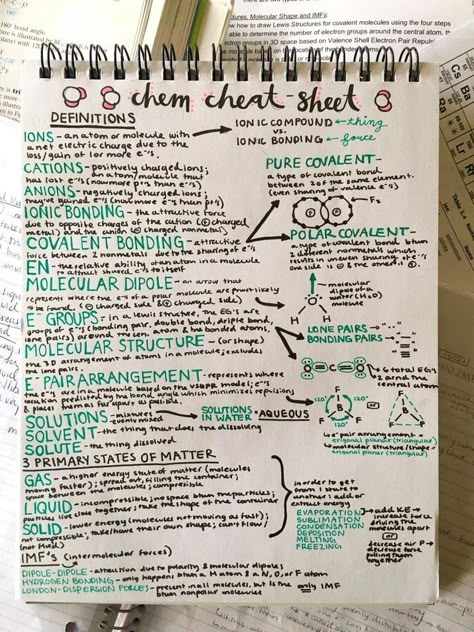 ctures, Molecular Shape and IMFs:
how to draw Lewis Structures for covalent molecules using the four steps
able to determine the number of electron groups around the central atom,
ectron groups in 3D space based on Valence Shell Electron Pair Repul
chem cheat-sheet
DEFINITIONS
IONS - an atom or molecule with
a net electric charge due to the
loss/gain of 1 or more e-'s
IONIC COMPOUND ← thing
vs.
IONIC BONDING ← force
CATIONS - positively charged ions;
an atom/molecule that
has lost e-'s (now more p+'s than e-'s)
ANIONS - negatively charged ions;
they've gained e-'s (now more e-'s than p+'s)
IONIC BONDING - the attractive force
due to opposite charges of the cation (+ charged
metal) and the anion (- charged nonmetal)
COVALENT BONDING - attractive
force between 2 nonmetals due to the sharing of e-'s
PURE COVALENT -
a type of covalent bond
between 2 of the same element.
(even sharing of valence e-'s)
F F
F₂
POLAR COVALENT -
a type of covalent bond btwn
2 different nonmetals which
results in uneven sharing of e-'s
one side is + and the other is -.
EN - the relative ability of an atom in a molecule
to attract shared e-'s to itself
MOLECULAR DIPOLE - an arrow that
represents where the e-'s of a polar molecule are most likely
to be found. (+ charged side & - charged side)
O
H H
molecular
dipole of a
water (H₂O)
molecule
E- GROUPS - in a lewis structure, the EG's are
groups of e-'s (bonding pair, double bond, triple bond,
lone pairs) around the cen. atom & the bonded atoms.
LONE PAIRS →
BONDING PAIRS →
MOLECULAR STRUCTURE - (or shape)
the 3D arrangement of atoms in a molecule; excludes
the lone pairs.
O = C = O
E- PAIR ARRANGEMENT - represents where
the e-'s are in a molecule based on the VSEPR model; e-'s
location predicted by the bond angle which minimizes repulsions
& places them as far apart as possible.
F
120° 120°
B
F F
120°
or
F
B
F F
SOLUTIONS - mixtures
evenly mixed
→ SOLUTIONS IN WATER = AQUEOUS
SOLVENT - the thing that does the dissolving
SOLUTE - the thing dissolved
3 PRIMARY STATES OF MATTER
GAS - a higher energy state of matter (molecules
moving faster); spread out, filling the container;
space between the molecules; compressible
LIQUID - incompressible; no space btwn the particles;
particles live close together; take the shape of the container
SOLID - lower energy (molecules not moving as fast);
not compressible; take/have their own shape; can't flow/
in order to get
from 1 state to
another: add or
extract energy
EVAPORATION
SUBLIMATION
CONDENSATION
DEPOSITION
MELTING
FREEZING
add KE →
increase force
driving the
molecules apart
or
decrease
force
pulling them
together
IMF's (intermolecular forces)
DIPOLE-DIPOLE - attraction due to polarity & molecular dipoles
HYDROGEN BONDING - only happens btwn a H atom & a N, O, or F atom
LONDON-DISPERSION FORCES - present in all molecules, but is the only IMF
btwn nonpolar molecules